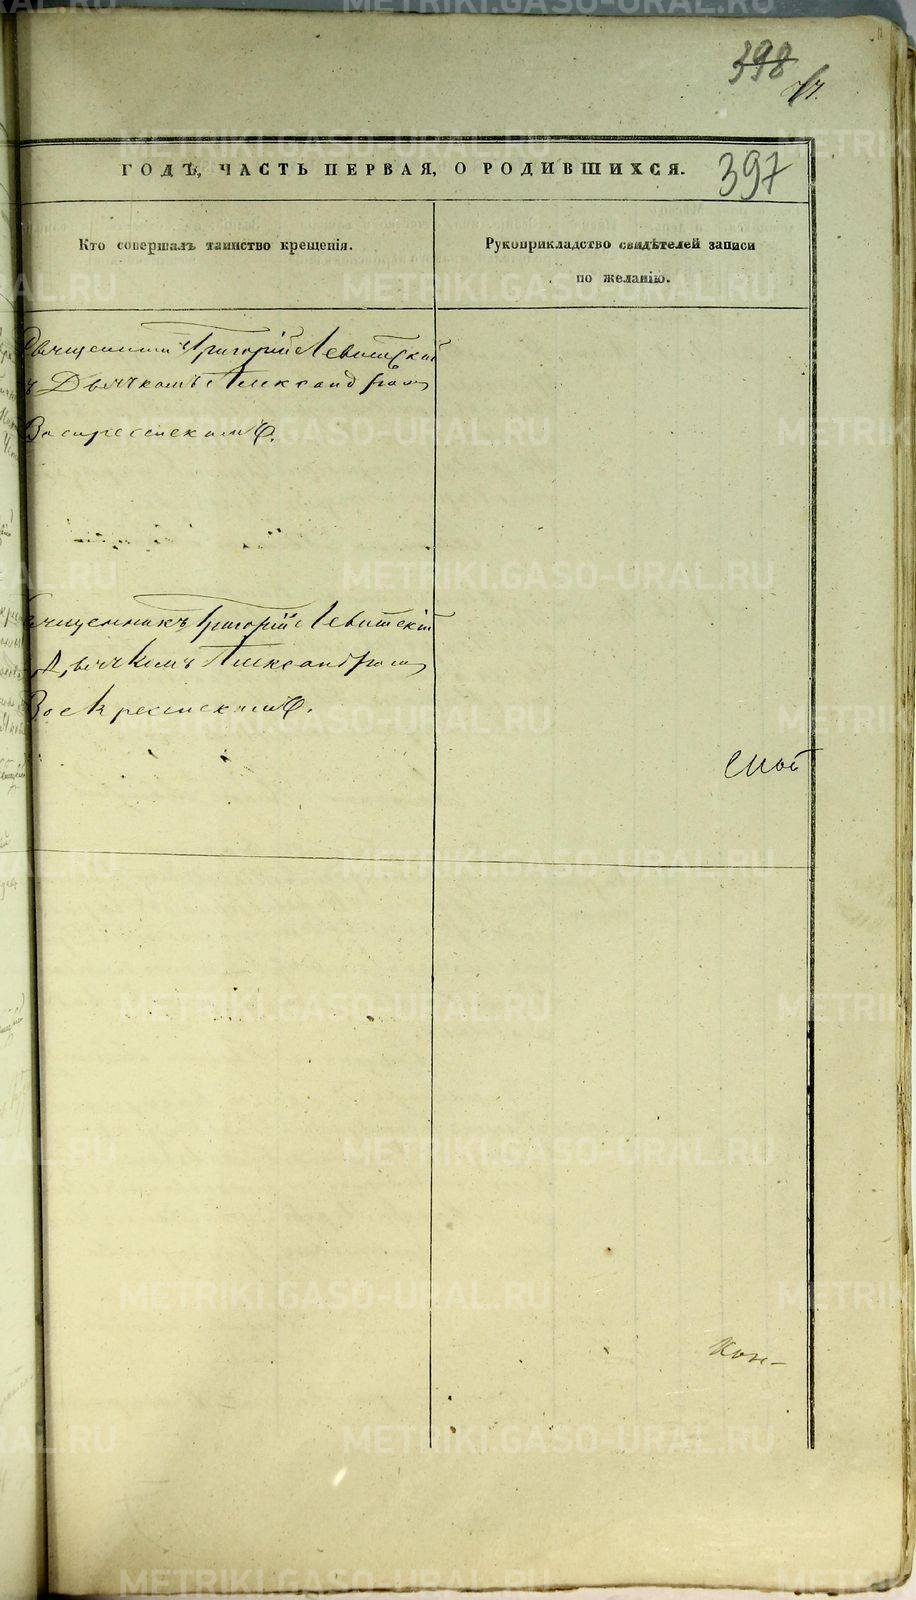 398
397
ГОДѢ, ЧАСТЬ ПЕРВАЯ, О РОДИВШИХСЯ.
Кто совершалъ таинство крещенія.
Рукоприкладство свидѣтелей записи
по желанію.
Священникъ Григорій Левитскій
ъ Дьячкомъ Александромъ
Воскресенскимъ.
Священникъ Григорій Левитскій
Дьячкомъ Александромъ
Воскресенскимъ.
METRIKI.GASO-URAL.RU